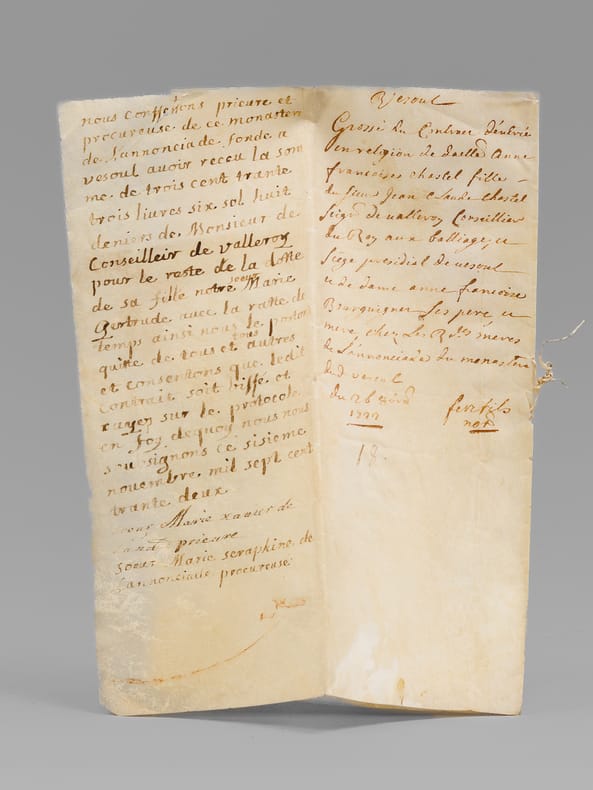 nous confessons prieure et
procureuse de ce monastere
de l'annonciade fonde a
vesoul avoir receu la som
me de trois cent trante
trois livres six sol huit
deniers de Monsieur de
Conseilleir de valleroy
pour le reste de la dotte
de sa fille notre soeur Marie
Gertrude avec la ratte de
temps ainsi nous le portons
quitte de tous et tous autres
et consentons que ledit
Contrait soit biffé et
rayer sur le protocole
en foy dequoy nous nous
sousignons ce sisieme
novembre mil sept cent
trante deux
soeur Marie xavier de
prieure
soeur Marie seraphine de
l'annonciade procureuse
Vesoul
Grosse du Contract d'entrée
en religion de dalle Anne
francoises chastel fille
du sieur Jean Claude chastel
Seigr de valleroy Conseillier
du Roy aux balliage et
siege presidial de vesoul
et de dame anne francoise
Bourguignet ses pere et
mere chez les Rdes meres
de L'annonciade du monastere
dud vesoul
du 26
1722
not
18